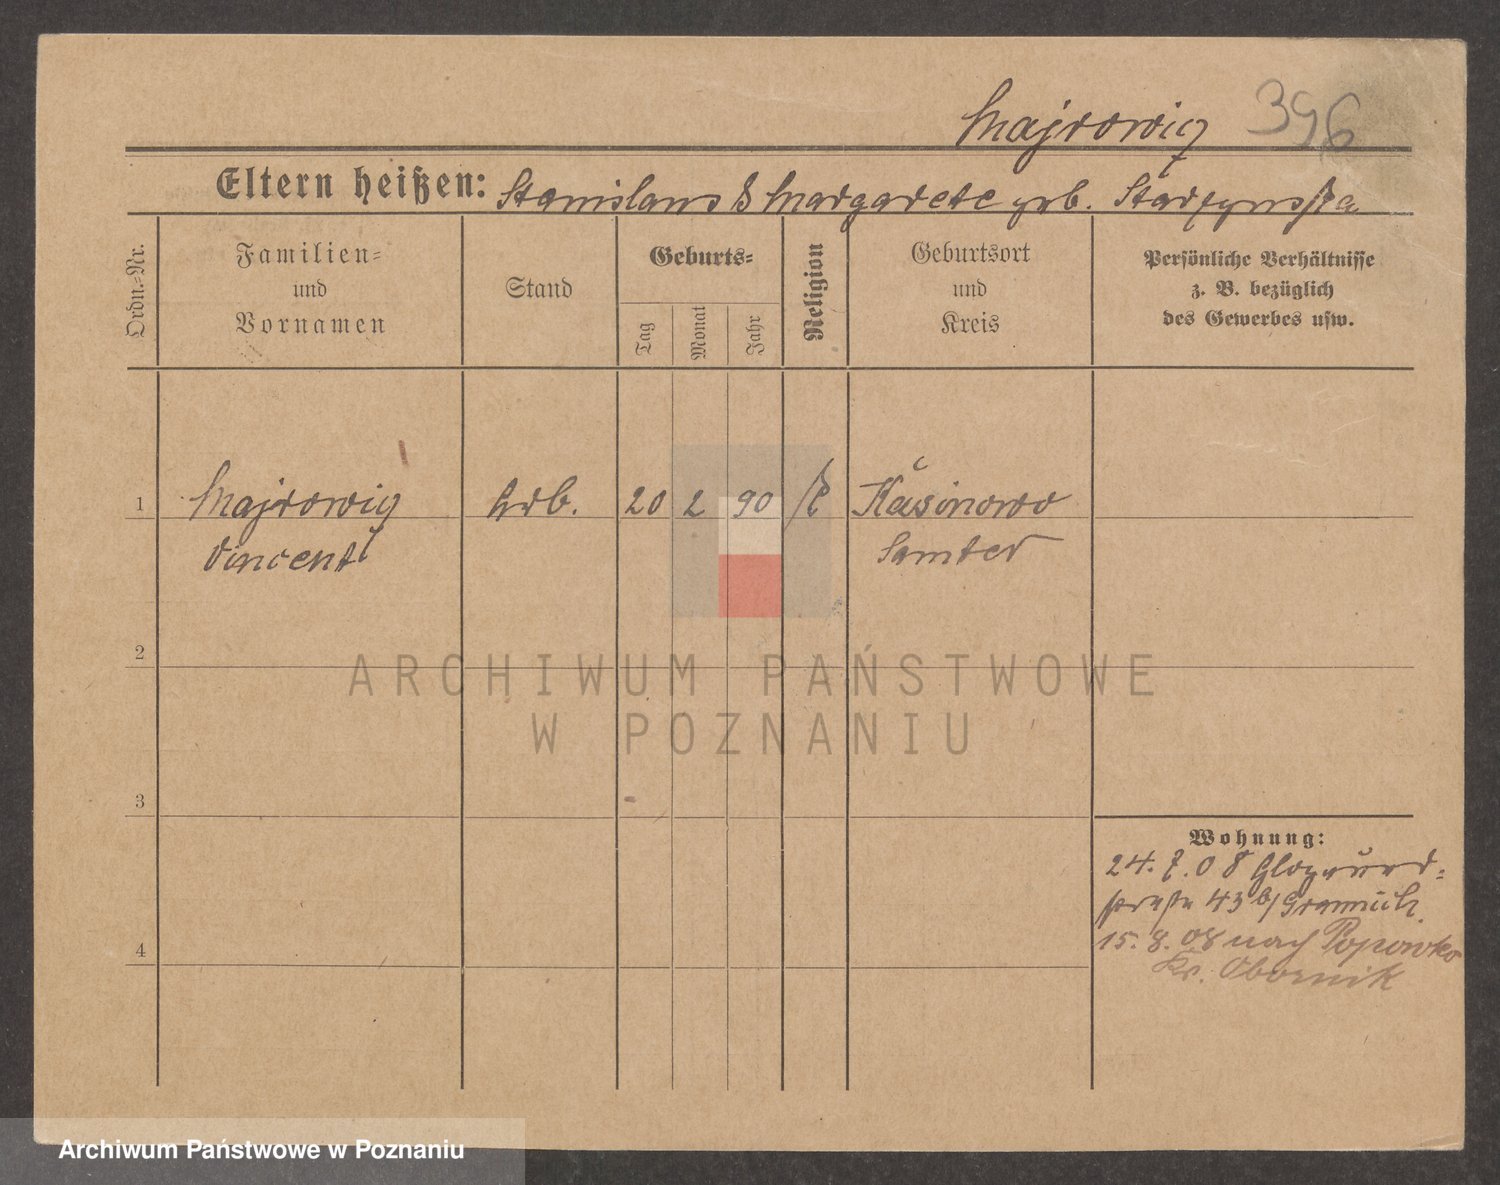 Majrowicz 396
Eltern heißen: Stanislaus & Margarete geb. Starzynska
Ordn.-Nr.
Familien-
und
Vornamen
Stand
Geburts-
Tag
Monat
Jahr
Religion
Geburtsort
und
Kreis
Persönliche Verhältnisse
z. B. bezüglich
des Gewerbes usw.
1 Majrowicz Arb. 20 2 90 k Kasinowo
Vincent Samter
2
ARCHIWUM PAŃSTWOWE
W POZNANIU
3
Wohnung:
24. 7. 08
straße 43 b/
4
15. 8. 08 nach Popowko
Kr. Obornik
Archiwum Państwowe w Poznaniu